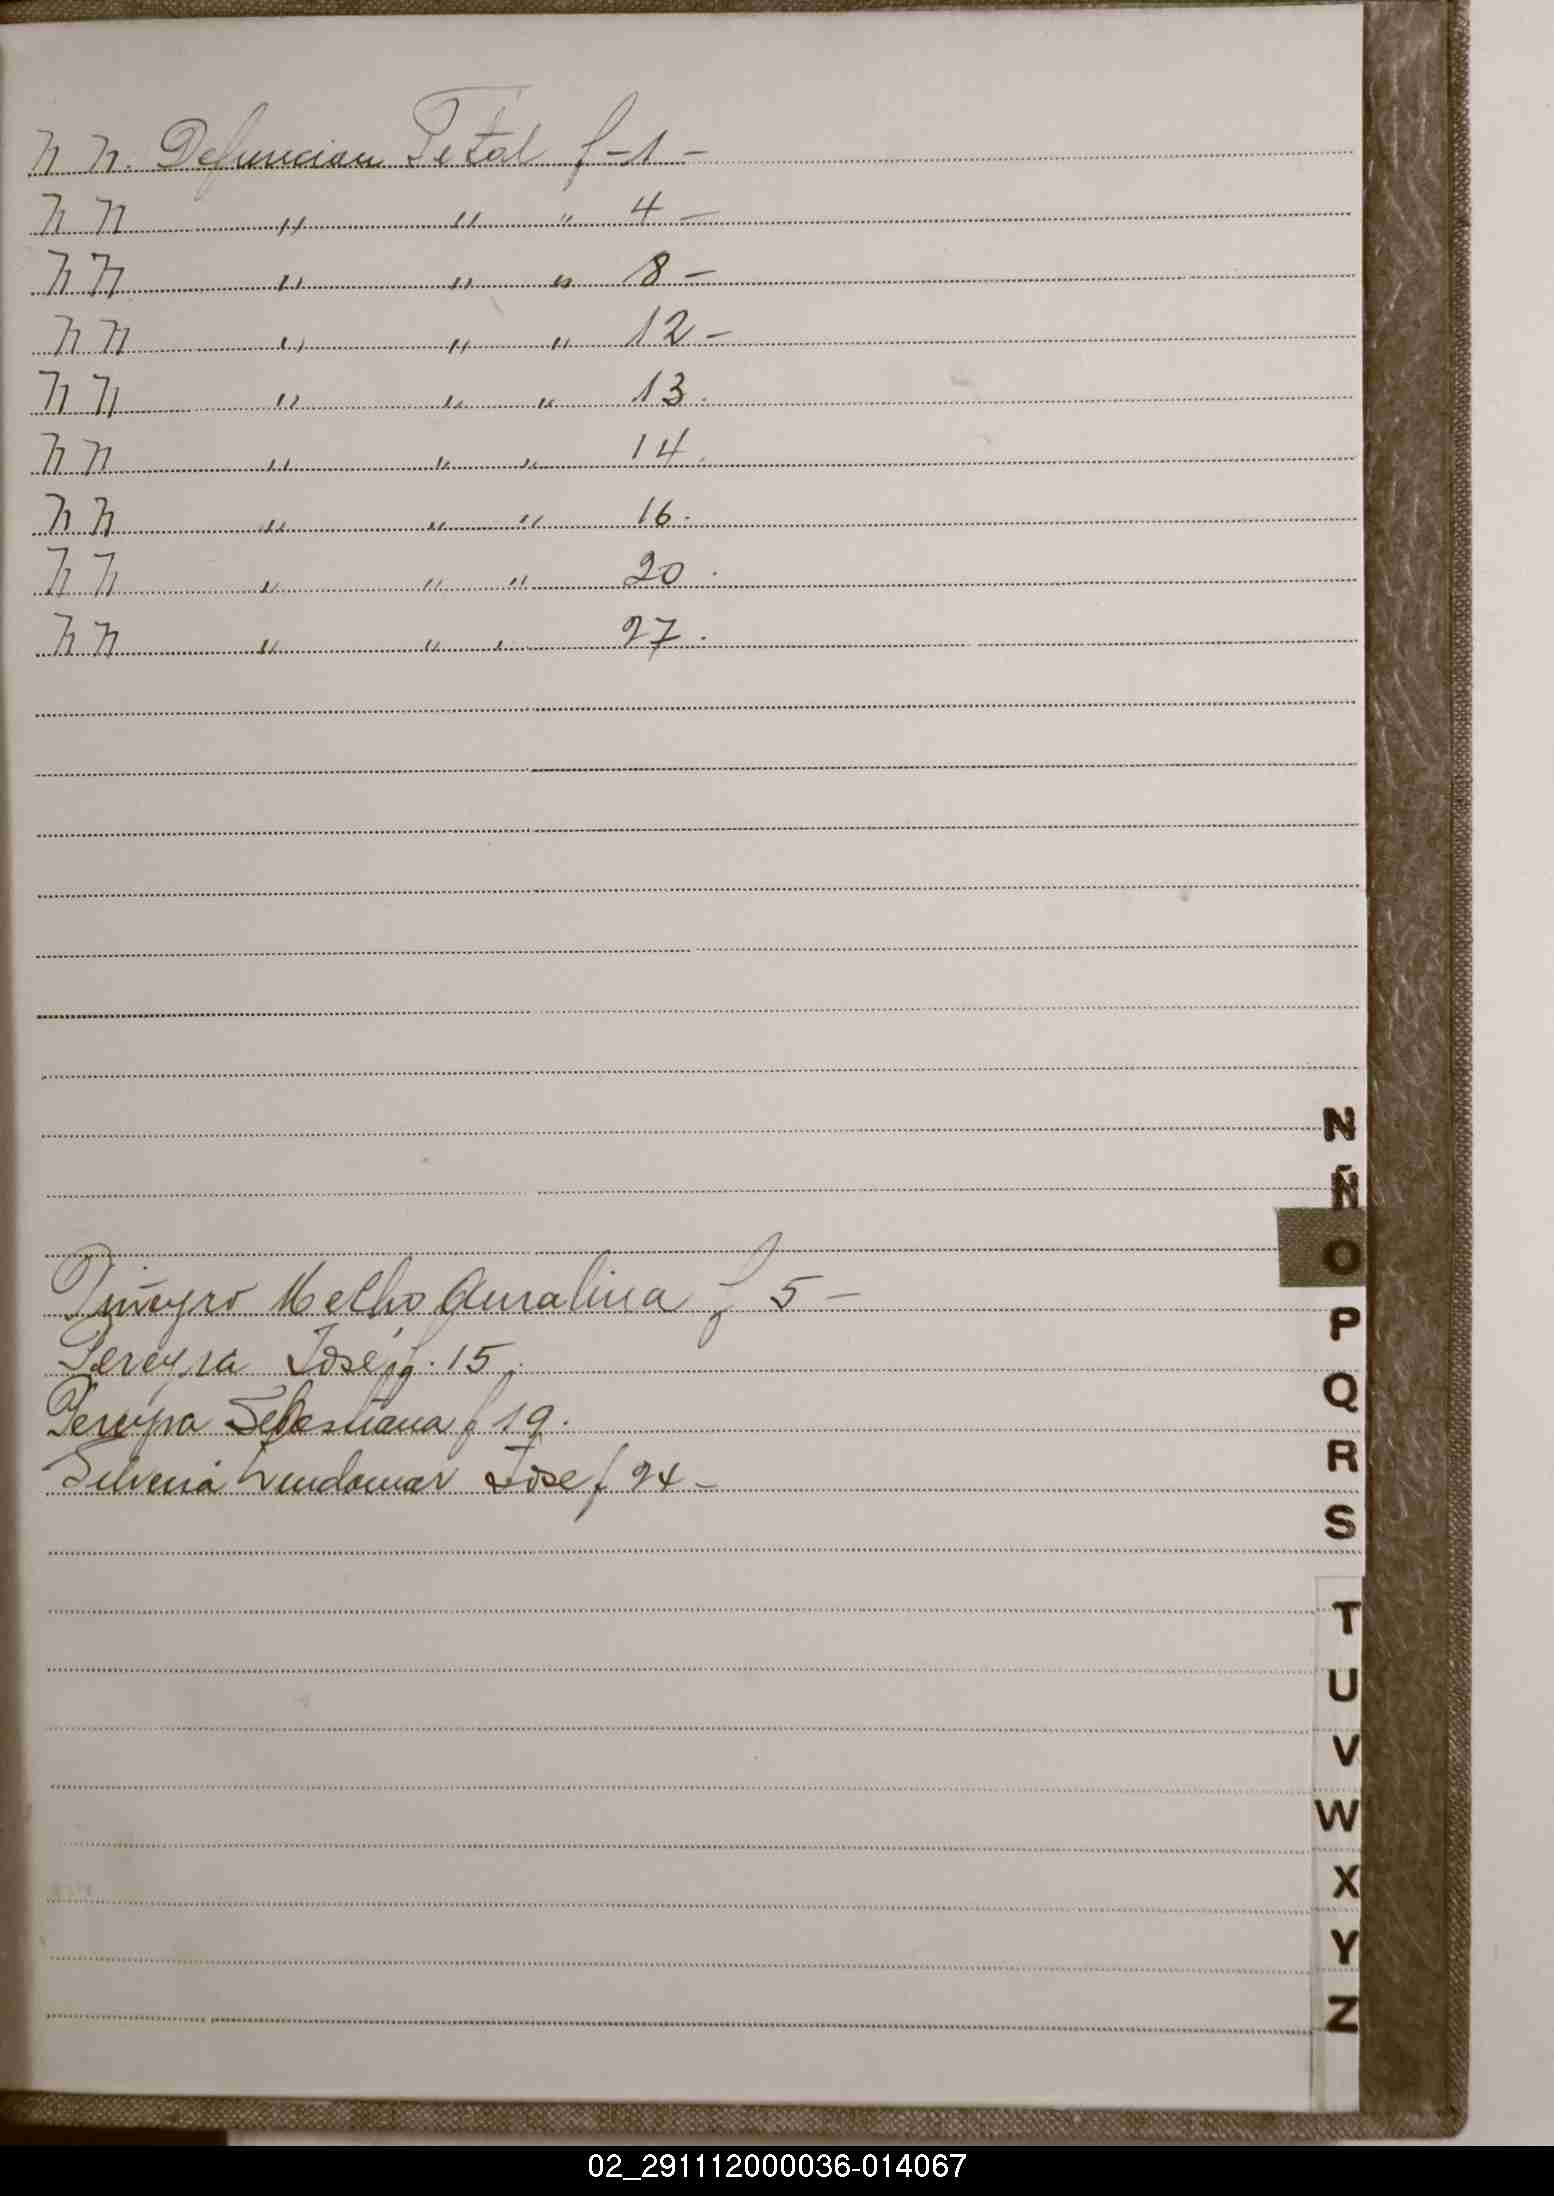 N N. Defuncion Fetal f-1-
N N " " " 4-
N N " " " 8-
N N " " " 12-
N N " " " 13.
N N " " " 14.
N N " " " 16.
N N " " " 20.
N N " " " 27.
Piñeyro Melho Auralina f 5-
Pereyra José f. 15.
Pereyra Sebastiana f 19.
Silveria Lindomar Jose f 24-
N
Ñ
O
P
Q
R
S
T
U
V
W
X
Y
Z
02_291112000036-014067